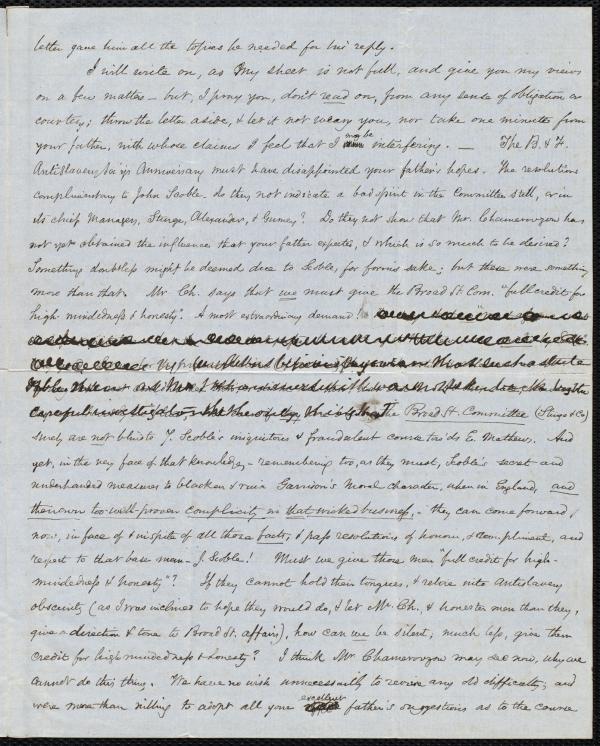 letter gave him all the topics he needed for his reply.
I will write on, as my sheet is not full, and give you my views
on a few matters – but, I pray you, don't read on, from any sense of obligation or
courtesy; throw the letter aside, & let it not weary you, nor take one minute from
your father, with whose claims I feel that I may be interfering. — The B. & F.
Antislavery Soc'y's Anniversary must have disappointed your father's hopes. The resolutions
complimentary to John Scoble, do they not indicate a bad spirit in the Committee still, or in
its chief Managers, Sturge, Alexander, & Gurney? Do they not show that Mr. Chamerovzow has
not yet obtained the influence that your father expected, & which is so much to be desired?
Something doubtless might be deemed due to Scoble, for form's sake; but these were something
more than that. Mr Ch. says that we must give the Broad St. Com. "full credit for
high mindedness & honesty." A most extraordinary demand!
The Broad St. Committee (Sturge & Co)
surely are not blind to J. Scoble's iniquitous & fraudulent course tow'ds E. Mathews. And
yet, in the very face of that knowledge, – remembering too, as they must, Scoble's secret and
underhanded measures to blacken & ruin Garrison's moral character, when in England, and
their own too-well-proven complicity in that wicked business, – they can come forward,
now, in face of & in spite of all those facts, & pass resolutions of honour, & compliment, and
respect to that base man – J. Scoble! Must we give those men "full credit for high-
mindedness & honesty"? If they cannot hold their tongues, & retire into Antislavery
obscurity (as I was inclined to hope they would do, & let Mr. Ch. & honester men than they,
give a direction & tone to Broad St. affairs), how can we be silent; much less, give them
credit for high mindedness & honesty? I think Mr Chamerovzow may see now, why we
cannot do this thing. We have no wish unnecessarily to revive any old difficulty, and
were more than willing to adopt all your excellent father's suggestions as to the course